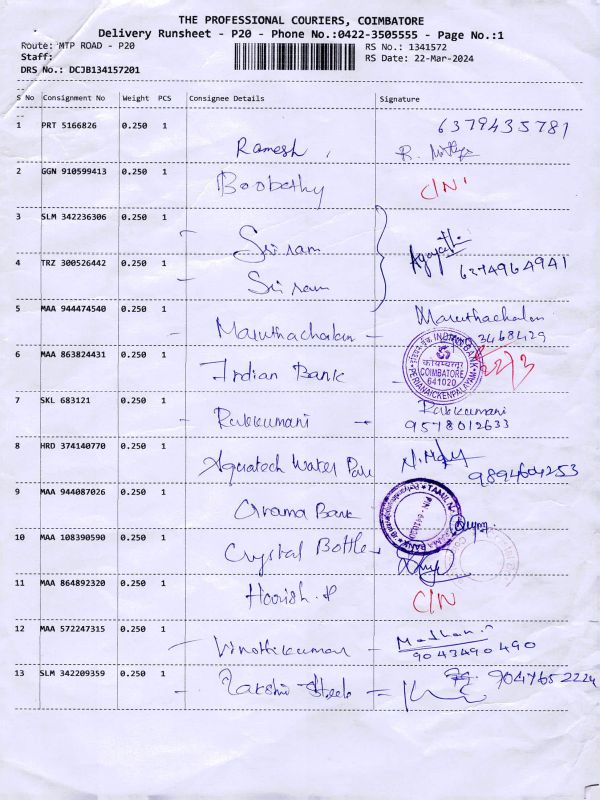 THE PROFESSIONAL COURIERS, COIMBATORE
Delivery Runsheet - P20 - Phone No.:0422-3505555 - Page No.:1
Route: MTP ROAD - P20
RS No.: 1341572
Staff:
RS Date: 22-Mar-2024
DRS No.: DCJB134157201
S No Consignment No Weight PCS Consignee Details Signature
1 PRT 5166826 0.250 1 Ramesh 6379435781
R.
2 GGN 910599413 0.250 1 Boobathy C/N
3 SLM 342236306 0.250 1 Sriram
4 TRZ 300526442 0.250 1 Sriram 6374964941
5 MAA 944474540 0.250 1 Maruthachalam Maruthachalam
3468429
6 MAA 863824431 0.250 1 Indian Bank 22/3
INDIAN BANK
कोयम्बत्तूर
COIMBATORE
641020
PERIANAICKENPALAYAM
7 SKL 683121 0.250 1 Rukkumani Rukkumani
9578012633
8 HRD 374140770 0.250 1 Aquatech Water Park 9894604253
9 MAA 944087026 0.250 1 Grama Bank
TAMIL NADU GRAMA BANK
10 MAA 108390590 0.250 1 Crystal Bottle
11 MAA 864892320 0.250 1 Harish.P C/N
12 MAA 572247315 0.250 1 Vinothkumar Madhan
9043490490
13 SLM 342209359 0.250 1 Lakshmi Steels 9047652224